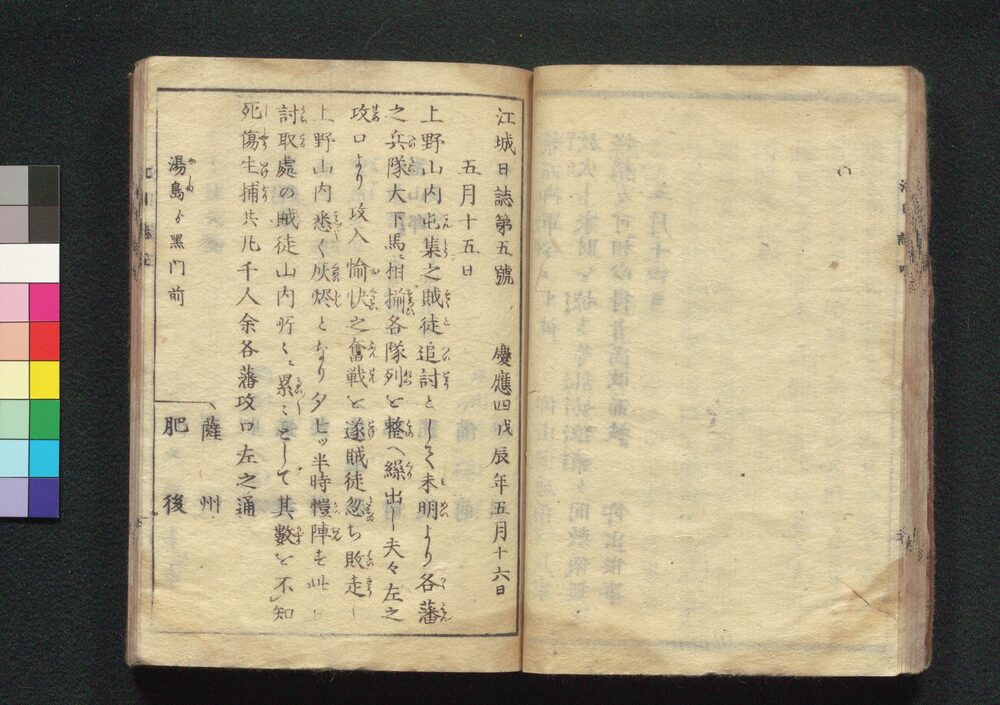 江城日誌第五號 慶應四戊辰年五月十六日
五月十五日
上野山内屯集之賊徒追討として未明より各藩
之兵隊大下馬ニ相揃各隊列を整へ繰出し夫々左之
攻口より攻入愉快之奮戦を遂賊徒忽ち敗走し
上野山内悉く灰烬となり夕七ッ半時愷陣す此
討取處の賊徒山内所々ニ累々として其數を不知
死傷生捕共凡千人余各藩攻口左之通
湯島ゟ黒門前
薩州
肥後